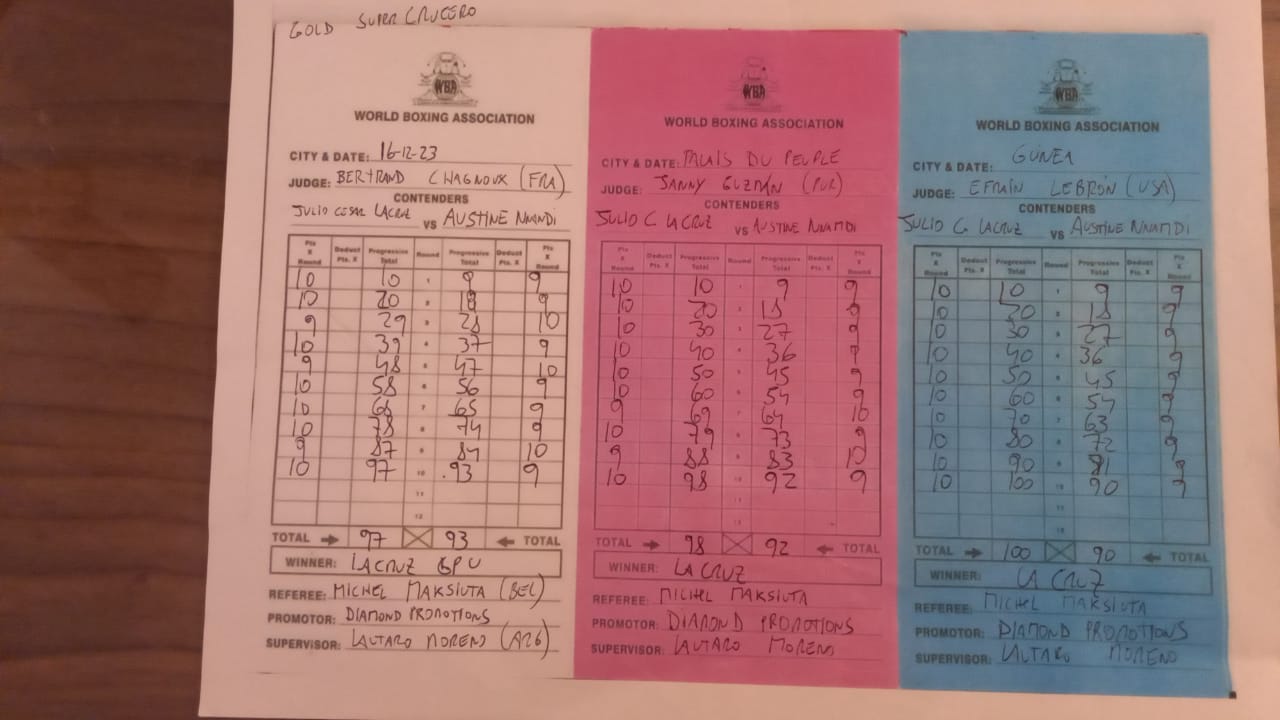 GOLD SUPER CRUCERO
WBA
WORLD BOXING ASSOCIATION
CITY & DATE: 16-12-23
JUDGE: BERTRAND CHAGNOUX (FRA)
CONTENDERS
JULIO CESAR LACRUZ VS AUSTINE NNAMDI
Pts X Round Deduct Pts. X Progressive Total Round Progressive Total Deduct Pts. X Pts X Round
10 10 9 9
10 20 18 9
9 29 28 10
10 39 37 9
9 48 47 10
10 58 56 9
10 68 65 9
10 78 74 9
9 87 84 10
10 97 10 93 9
11
12
TOTAL 97 93 TOTAL
WINNER: LACRUZ GPU
REFEREE: MICHEL MAKSIUTA (BEL)
PROMOTOR: DIAMOND PROMOTIONS
SUPERVISOR: LAUTARO MORENO (ARG)
WBA
WORLD BOXING ASSOCIATION
CITY & DATE: PALAIS DU PEUPLE
JUDGE: SANNY GUZMÁN (PUR)
CONTENDERS
JULIO C LA CRUZ VS AUSTINE NNAMDI
Pts X Round Deduct Pts. X Progressive Total Round Progressive Total Deduct Pts. X Pts X Round
10 10 9 9
10 20 18 9
10 30 27 9
10 40 36 9
10 50 45 9
10 60 54 9
9 69 64 10
10 79 73 9
9 88 83 10
10 98 10 92 9
11
12
TOTAL 98 92 TOTAL
WINNER: LA CRUZ
REFEREE: MICHEL MAKSIUTA
PROMOTOR: DIAMOND PROMOTIONS
SUPERVISOR: LAUTARO MORENO
WBA
WORLD BOXING ASSOCIATION
CITY & DATE: GUINEA
JUDGE: EFRAÍN LEBRÓN (USA)
CONTENDERS
JULIO C. LACRUZ VS AUSTINE NNAMDI
Pts X Round Deduct Pts. X Progressive Total Round Progressive Total Deduct Pts. X Pts X Round
10 10 9 9
10 20 18 9
10 30 27 9
10 40 36 9
10 50 45 9
10 60 54 9
10 70 63 9
10 80 72 9
10 90 81 9
10 100 10 90 9
11
12
TOTAL 100 90 TOTAL
WINNER: LA CRUZ
REFEREE: MICHEL MAKSIUTA
PROMOTOR: DIAMOND PROMOTIONS
SUPERVISOR: LAUTARO MORENO